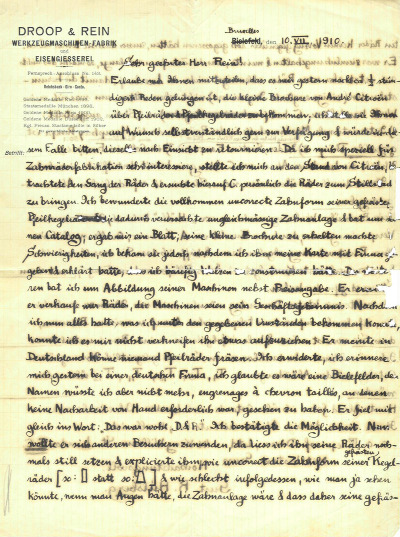 DROOP & REIN
WERKZEUGMASCHINEN-FABRIK
UND
EISENGIESSEREI
Bruxelles
Bielefeld, den 10. VII. 1910
Betrifft:
Sehr geehrter Herr Rein!
Erlaube mir Ihnen mitzuteilen, dass es mir gestern nach
digem Reden gelungen ist, die kleine Brochure von André Citroën
über Pfeilräder zu bekommen, ich
auf Wunsch selbstverständlich gern zur Verfügung & würde
sem Falle bitten, dieselbe nach Einsicht zu retournieren. Da ich mich speziell für
Zahnräderfabrikation sehr interessiere, stellte ich mich an den Stand von Citroën, be-
trachtete den Gang der Räder & ersuchte hierauf C. persönlich die Räder zum Stillstand
zu bringen. Ich bewunderte die vollkommen uncorrecte Zahnform seiner gefrästen
Pfeilkegelräder, die dadurch verursachte ungleichmässige Zahnanlage & bat um ei-
nen Catalog; er gab mir ein Blatt, seine kleine Brochure zu erhalten machte
Schwierigkeiten, ich bekam sie jedoch nachdem ich ihm meine Karte mit Firma
geben & erklärt hatte, dass ich häufig
ren bat ich um Abbildung seiner Maschinen nebst Preisangabe. Er
er verkaufe nur Räder, die Maschinen seien sein Geschäftsgeheimnis. Nachdem
ich nun alles hatte, was ich unter den gegebenen Umständen bekommen konnte,
konnte ich es mir nicht verkneifen ihn etwas aufzuziehen. Er meinte in
Deutschland könne niemand Pfeilräder fräsen. Ich erwiderte, ich erinnere
mich gestern bei einer deutschen Firma, ich glaubte es wäre eine Bielefelder, den
Namen wüsste ich aber nicht mehr, engrenages à chevron taillés, an denen
keine Nacharbeit von Hand erforderlich war, gesehen zu haben. Er fiel mir
gleich ins Wort: Das war wohl "D. & R." Ich bestätigte die Möglichkeit. Nun
wollte er sich anderen Besuchern zuwenden, da liess ich ihn seine Räder noch-
mals still setzen & explicierte ihm wie uncorrect die Zahnform seiner gefrästen Kegel-
räder statt & wie schlecht infolgedessen, wie man ja sehen
könnte, wenn man Augen hätte, die Zahnanlage wäre & dass daher seine gefräs-